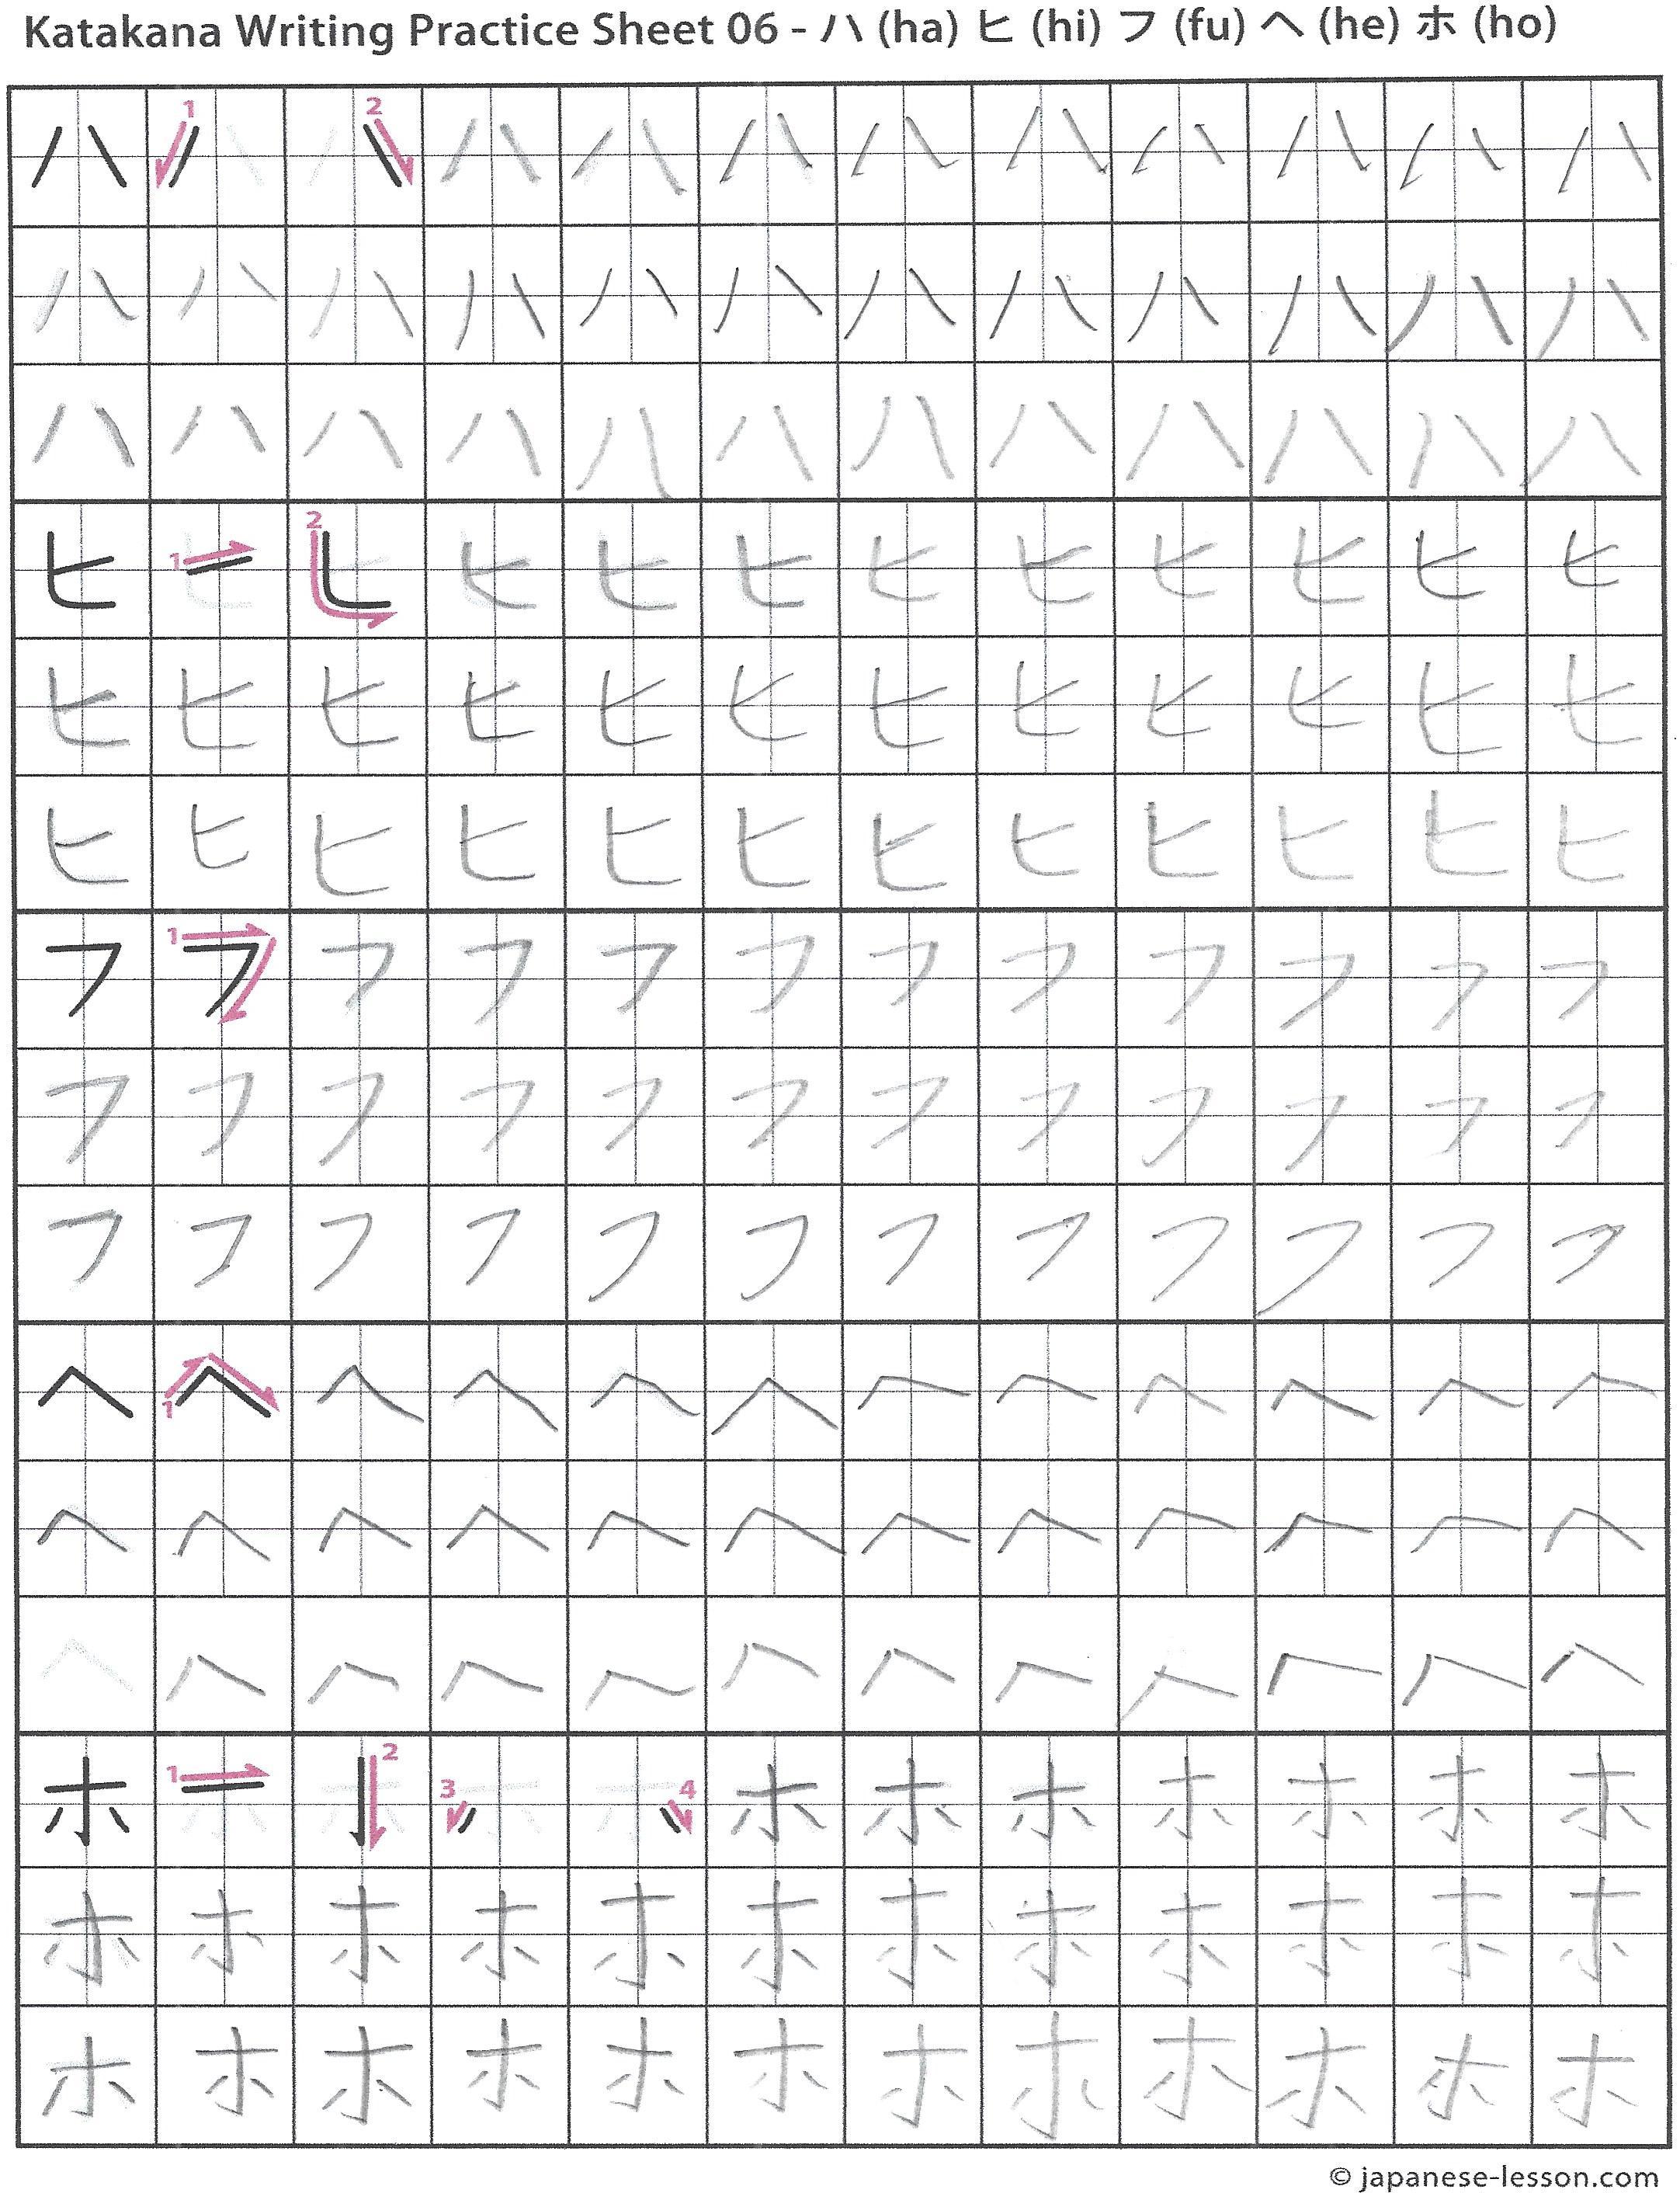 Katakana Writing Practice Sheet 06 - ハ (ha) ヒ (hi) フ (fu) ヘ (he) ホ (ho)
ハ 1 2 ハ ハ ハ ハ ハ ハ ハ ハ ハ
ハ ハ ハ ハ ハ ハ ハ ハ ハ ハ ハ ハ
ハ ハ ハ ハ ハ ハ ハ ハ ハ ハ ハ ハ
ヒ 1 2 ヒ ヒ ヒ ヒ ヒ ヒ ヒ ヒ ヒ
ヒ ヒ ヒ ヒ ヒ ヒ ヒ ヒ ヒ ヒ ヒ ヒ
ヒ ヒ ヒ ヒ ヒ ヒ ヒ ヒ ヒ ヒ ヒ ヒ
フ 1 フ フ フ フ フ フ フ フ フ フ フ
フ フ フ フ フ フ フ フ フ フ フ フ
フ フ フ フ フ フ フ フ フ フ フ フ
ヘ 1 ヘ ヘ ヘ ヘ ヘ ヘ ヘ ヘ ヘ ヘ ヘ
ヘ ヘ ヘ ヘ ヘ ヘ ヘ ヘ ヘ ヘ ヘ ヘ
ヘ ヘ ヘ ヘ ヘ ヘ ヘ ヘ ヘ ヘ ヘ ヘ
ホ 1 2 3 4 ホ ホ ホ ホ ホ ホ ホ
ホ ホ ホ ホ ホ ホ ホ ホ ホ ホ ホ ホ
ホ ホ ホ ホ ホ ホ ホ ホ ホ ホ ホ ホ
© japanese-lesson.com